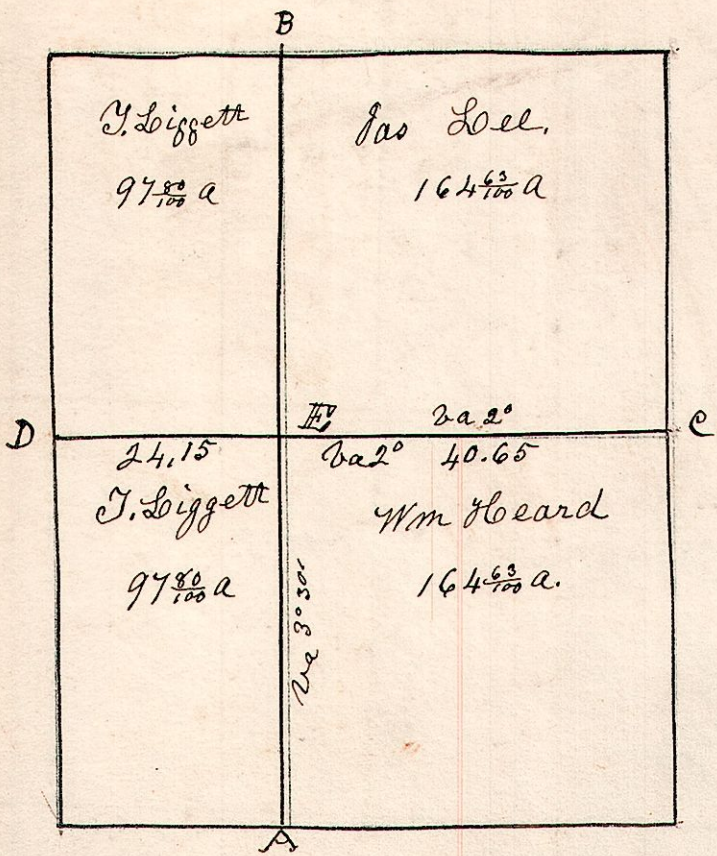 B
T. Liggett
97 80/100 a
Jas Lee.
164 63/100 A
D
E
va 2°
C
24,15
va 2° 40.65
T. Liggett
97 80/100 a
Wm Heard
164 63/100 a.
Va 3° 30'
A